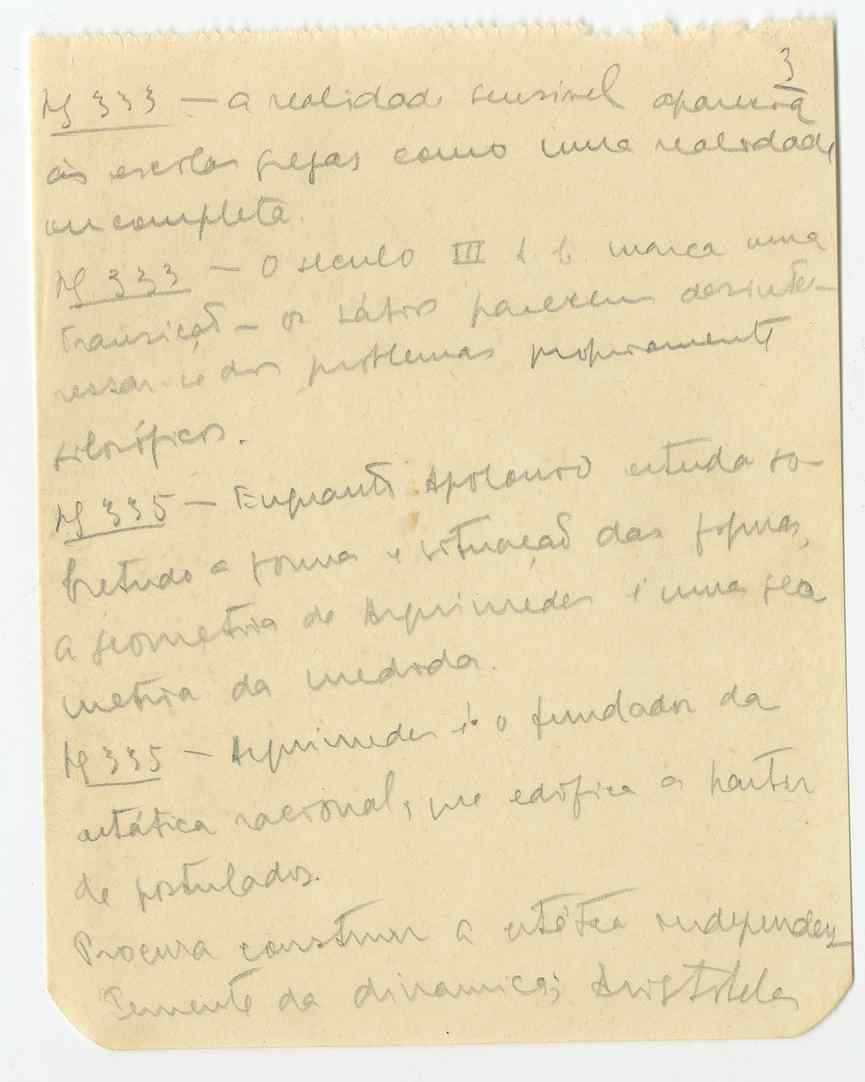 3
Pg 333 — a realidade sensivel aparecia
às escolas gregas como uma realidade
incompleta.
Pg 333 — O século III A. C. marca uma
transição — os sábios parecem desinte-
ressar-se dos problemas propriamente
filosóficos.
Pg 335 — Enquanto Apolonio estuda so-
bretudo a forma e situação das figuras,
a geometria de Arquimedes é uma geo
metria da medida.
Pg 335 — Arquimedes é o fundador da
estática racional, que edifica a partir
de postulados.
Procura construir a estática independen
temente da dinamica; Aristoteles